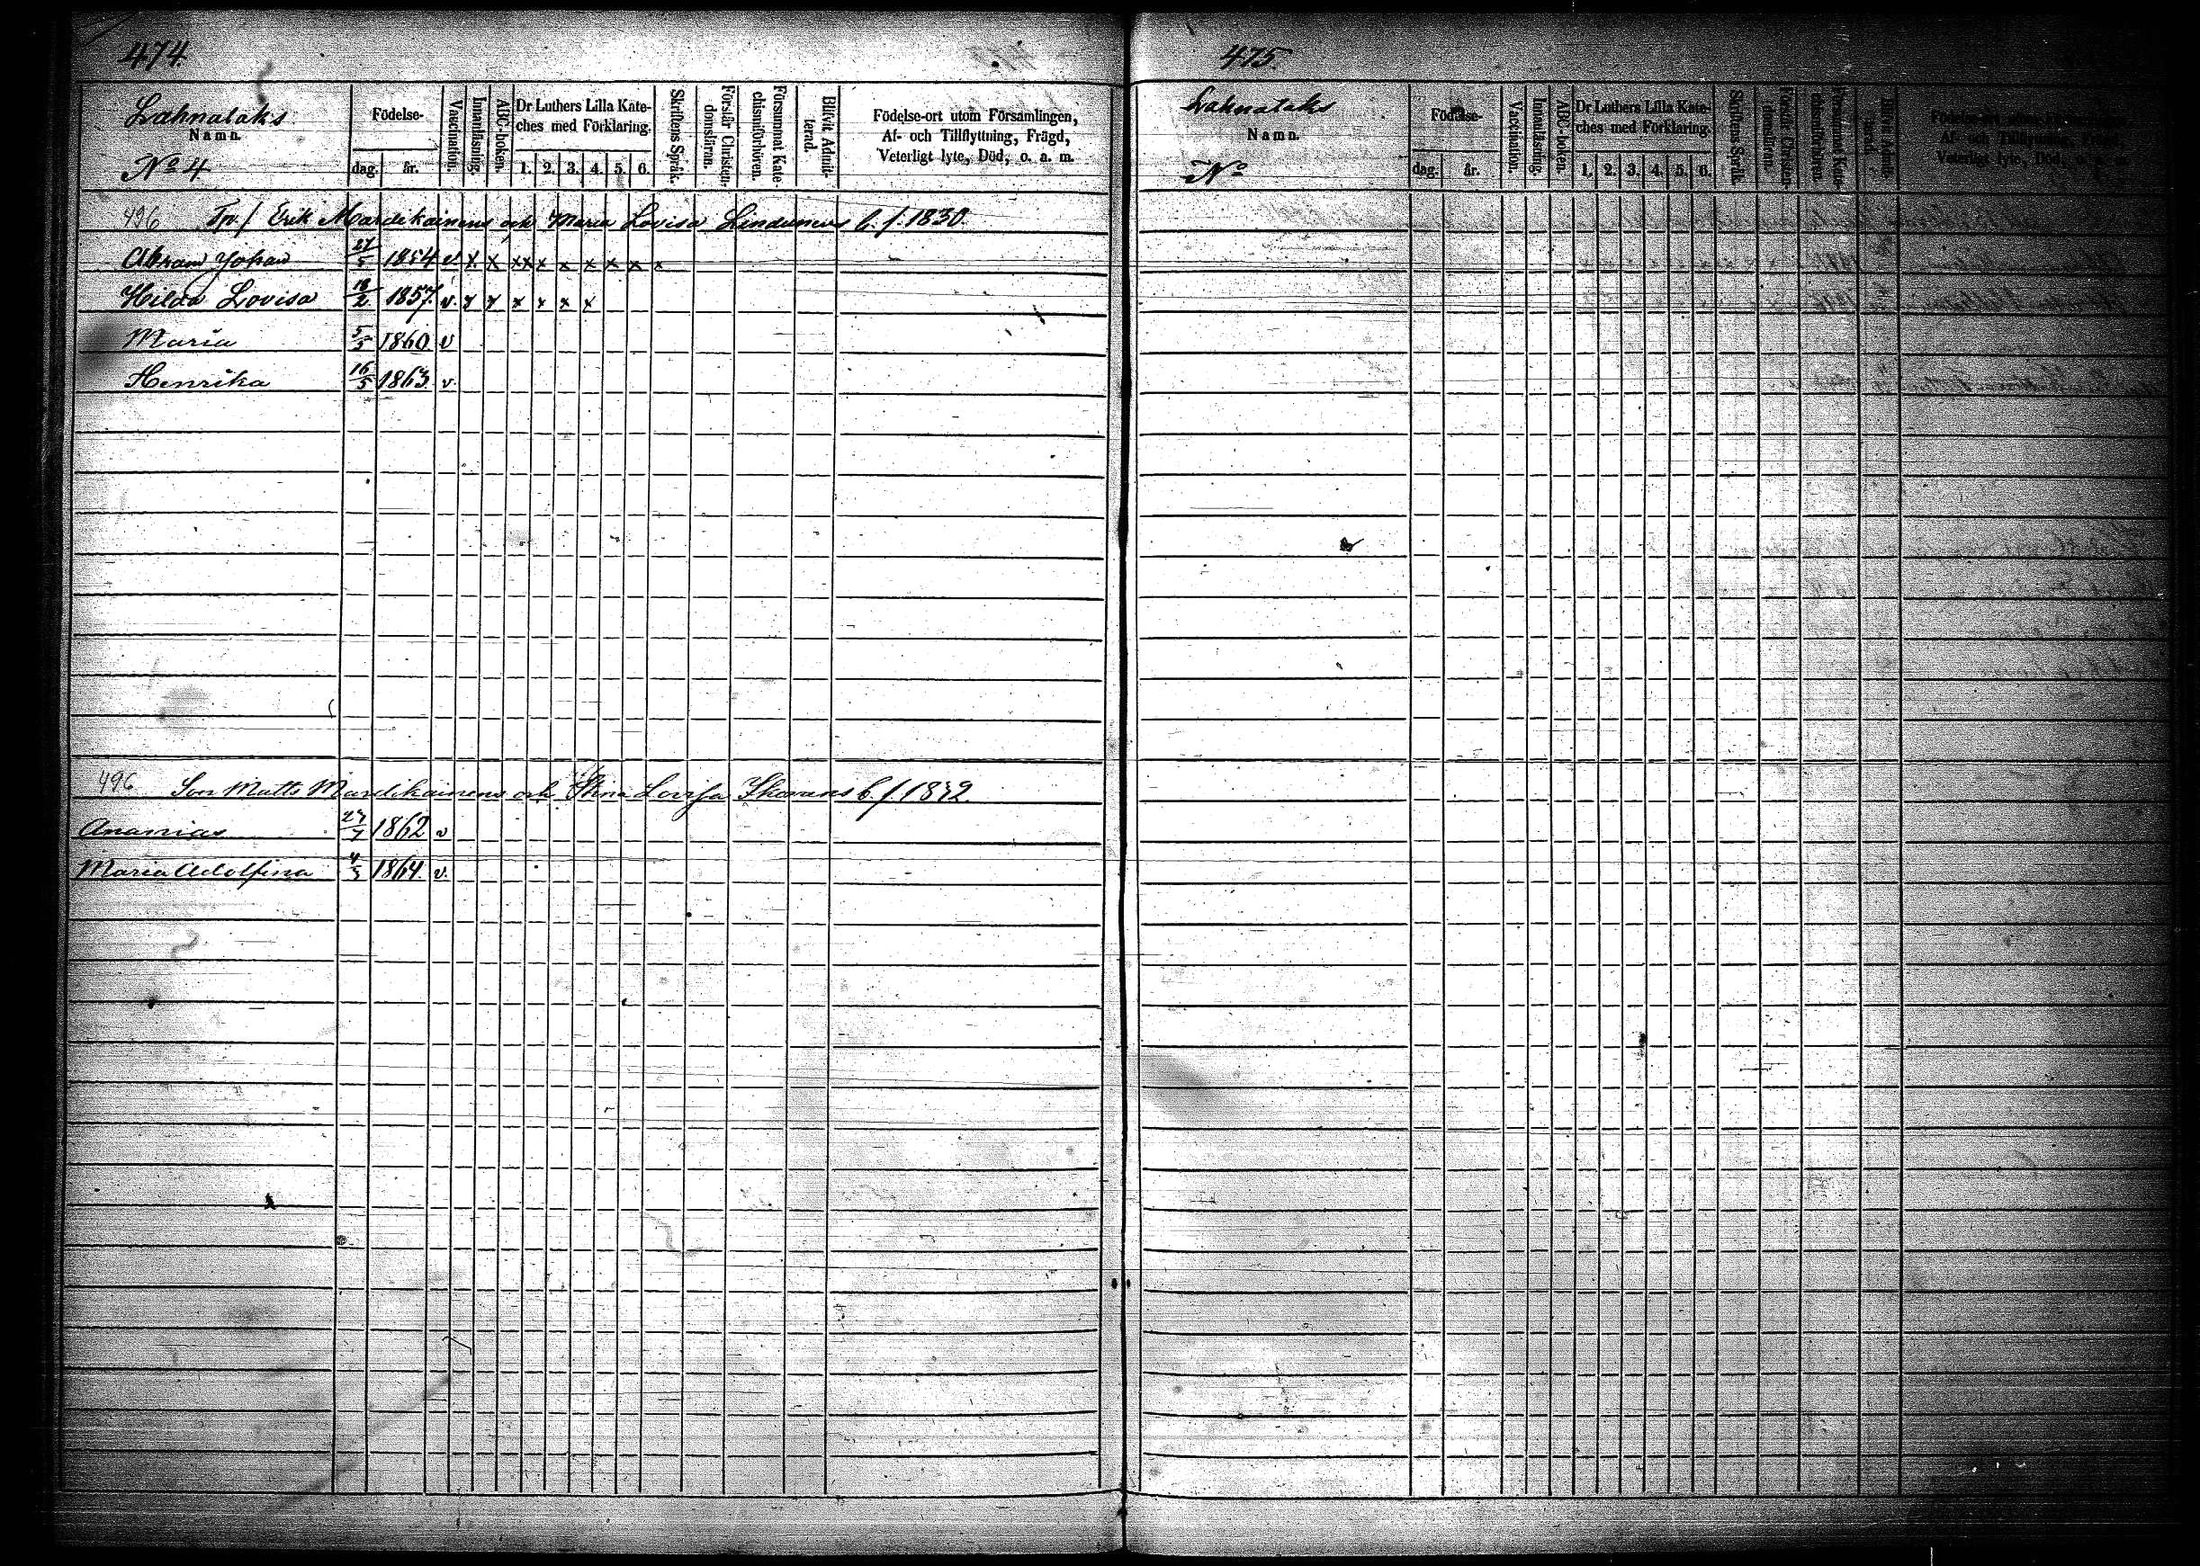 474
Lahnalaks
Namn.
No 4
Födelse-
dag. år.
Vaccination.
Innanläsning.
ABC-boken.
Dr Luthers Lilla Kate-
ches med Förklaring.
1. 2. 3. 4. 5. 6.
Skriftens Språk.
Förstår Christen-
domsläran.
Försummat Kate-
chismiförhören.
Blifvit Admit-
terad.
Födelse-ort utom Församlingen,
Af- och Tillflyttning, Frägd,
Veterligt lyte, Död, o. a. m.
496 Tp/ Erik Mardikainens och Maria Lovisa b. f. 1830.
Abram Johan 27/5 1854 v x x xx x x x x x x
Hilda Lovisa 18/2 1857. v. x x x x x x
Maria 5/5 1860 v
Henrika 16/5 1863. v.
496 Son Matts Mardikainens och Stina Lovisa b. f. 1832.
Ananias 27/7 1862 v
Maria Adolfina 4/3 1864. v.
475.
Lahnalaks
Namn.
No
Födelse-
dag. år.
Vaccination.
Innanläsning.
ABC-boken.
Dr Luthers Lilla Kate-
ches med Förklaring.
1. 2. 3. 4. 5. 6.
Skriftens Språk.
Förstår Christen-
domsläran.
Försummat Kate-
chismiförhören.
Blifvit Admit-
terad.
Födelse-ort utom Församlingen,
Af- och Tillflyttning, Frägd,
Veterligt lyte, Död, o. a. m.